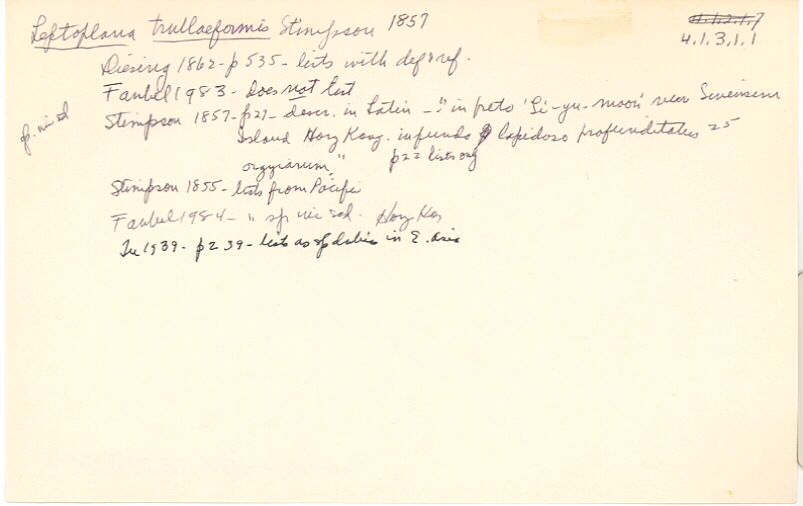 Leptoplana trullaeformis Stimpson 1857
4.1.2.1.7
4.1.3.1.1
Diesing 1862 - p 535 - lists with def & ref.
Faubel 1983 - does not list
Stimpson 1857 - p 27 - descr. in Latin - "in freto 'Li-yu-moon' near
Island Hong Kong. in fundo lapidoso profunditates 25
orgyiarum." p 22 lists only
Stimpson 1855 - lists from Pacific
Faubel 1984 - " sp. inc sed. Hong Kong
1939 - p 239 - lists as sp dubia in E. Asia